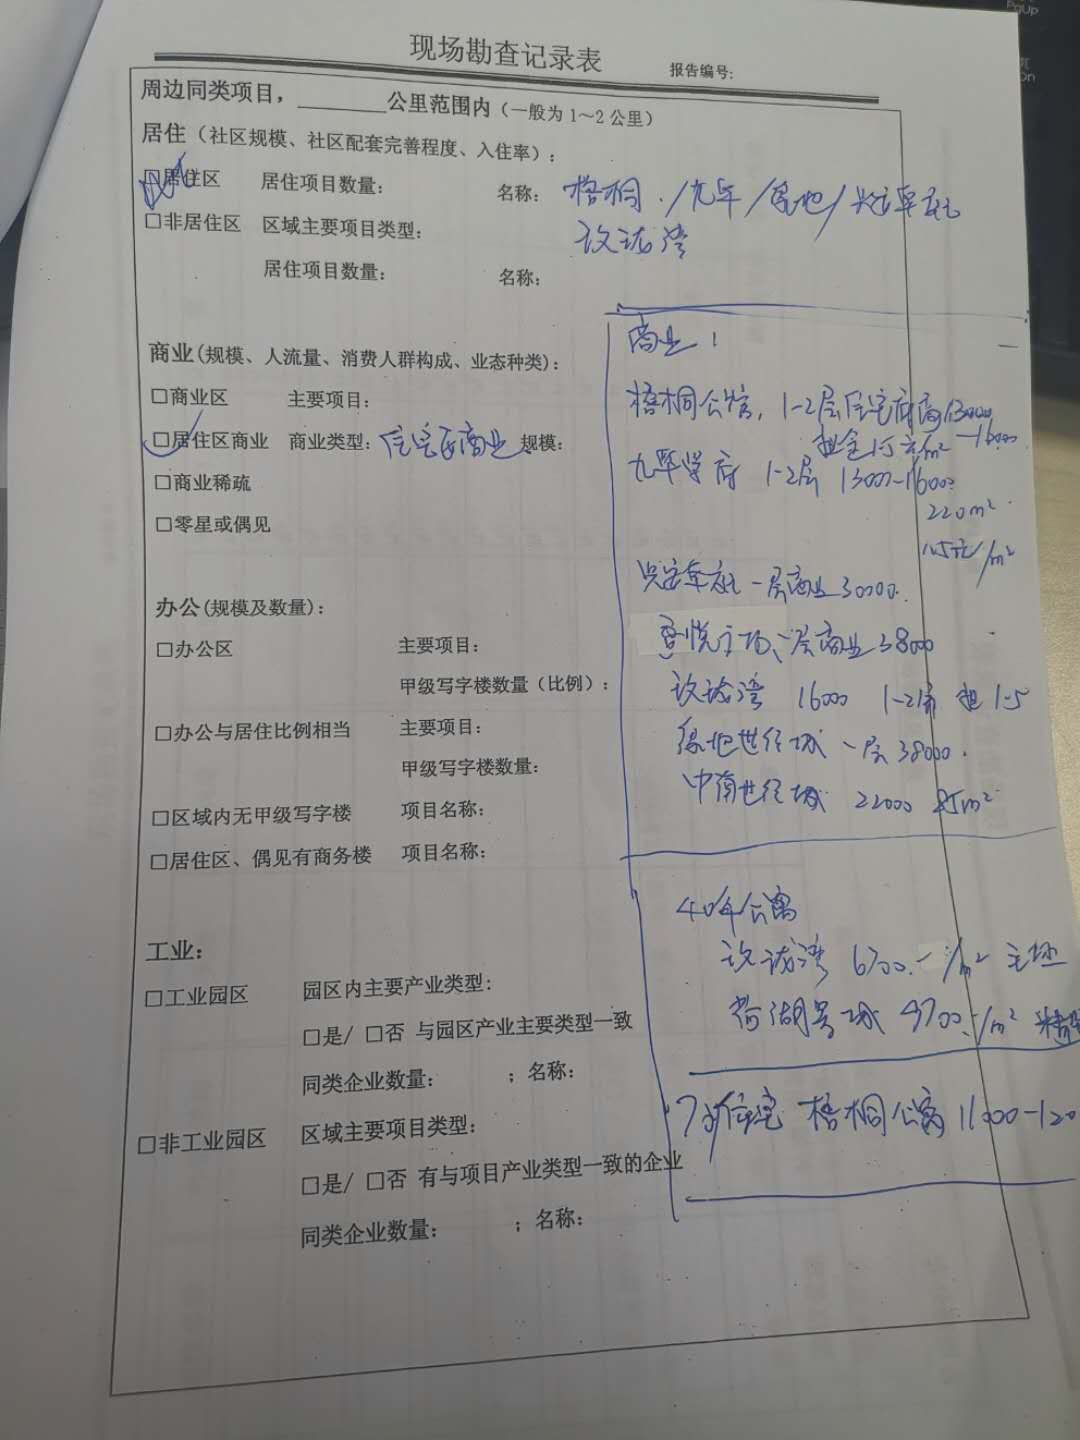 PgUp
现场勘查记录表
报告编号:
周边同类项目，______公里范围内（一般为 1～2 公里）
居住（社区规模、社区配套完善程度、入住率）：
□居住区 居住项目数量: 名称: 梧桐 /九年 / /
□非居住区 区域主要项目类型: 玖珑湾
居住项目数量: 名称:
商业
商业(规模、人流量、消费人群构成、业态种类):
□商业区 主要项目: 梧桐公馆, 1-2层住宅底商13000
-16000
□居住区商业 商业类型: 住宅底商业 规模: 租金 元/m²
□商业稀疏 九年学府 1-2层 13000-16000
□零星或偶见 220m²
1.5元/m²
一层商业30000.
办公(规模及数量):
□办公区 主要项目: 一层商业38000
甲级写字楼数量（比例）: 玖珑湾 16000 1-2层 租1.5
□办公与居住比例相当 主要项目: 绿地世纪城 一层 38000.
甲级写字楼数量: 中南世纪城 22000 m²
□区域内无甲级写字楼 项目名称:
□居住区、偶见有商务楼 项目名称:
40年公寓
工业: 玖珑湾 6700.-/m² 毛坯
□工业园区 园区内主要产业类型: 城 /m² 精装
□是/ □否 与园区产业主要类型一致
同类企业数量: ；名称:
□非工业园区 区域主要项目类型: 住宅 梧桐公寓 11000-120
□是/ □否 有与项目产业类型一致的企业
同类企业数量: ；名称: